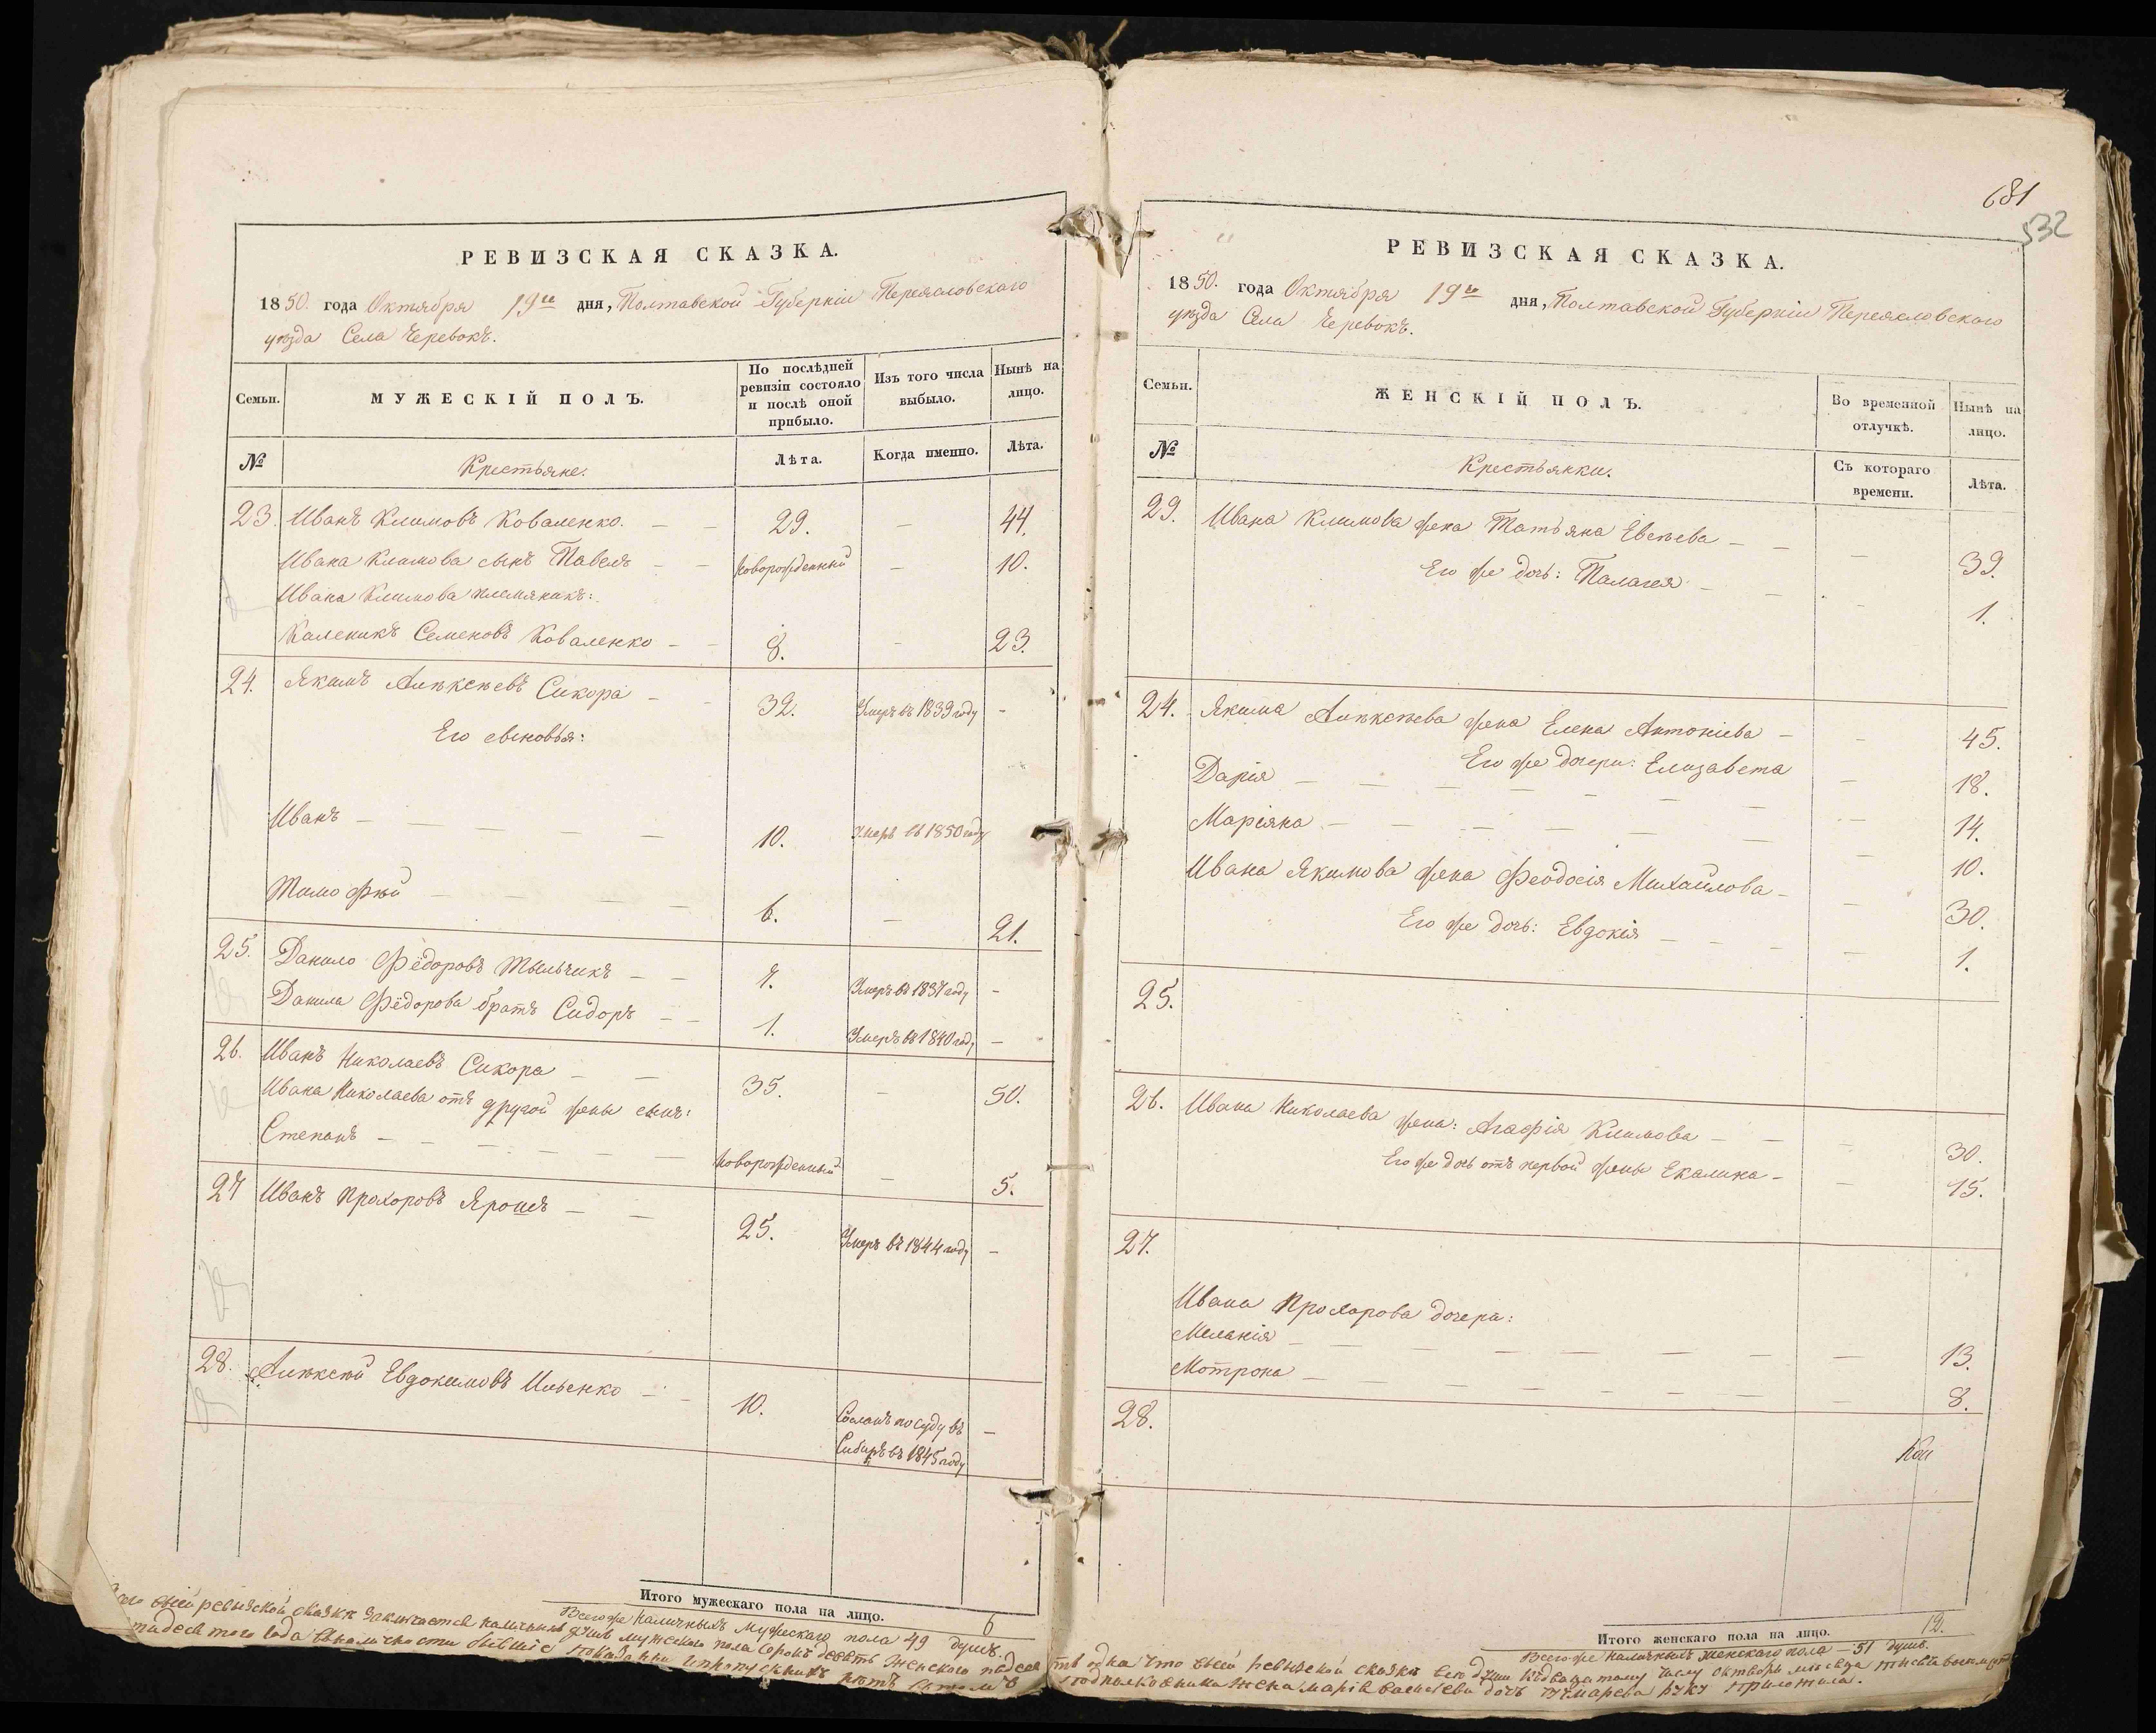 РЕВИЗСКАЯ СКАЗКА.
1850. года Октября 19го дня, Полтавской Губерніи Переясловскаго
уѣзда Села Черевокъ.
Семьи. МУЖЕСКІЙ ПОЛЪ. По послѣдней ревизіи состояло и послѣ оной прибыло. Изъ того числа выбыло. Нынѣ на лицо.
№ Крестьяне. Лѣта. Когда именно. Лѣта.
23. Иванъ Климовъ Коваленко. — — 29. — 44.
Ивана Климова сынъ Павелъ — — новорожденный — 10.
Ивана Климова племяникъ:
Каленикъ Семеновъ Коваленко — — 8. — 23.
24. Якимъ Алѣксѣевъ Сикора — — 32. Умеръ въ 1839 году —
Его сыновья:
Иванъ — — — — 10. Умеръ въ 1850 году
Тимофѣй — — — — 6. — 21.
25. Данило Фёдоровъ Тыльчикъ — — 7. Умеръ въ 1837 году —
Данила Фёдорова братъ Сидоръ — — 1. Умеръ въ 1840 году —
26. Иванъ Николаевъ Сикора — — 35. — 50.
Ивана Николаева отъ другой жены сынъ:
Степанъ — — — — — — новорожденный — 5.
27 Иванъ Прохоровъ Ярошъ — — 25. Умеръ въ 1844 году —
28. Алѣксѣй Евдокимовъ Ильенко — — 10. Сосланъ по суду въ —
Сибиръ въ 1845 году
Итого мужескаго пола на лицо. 6
Всего же наличныхъ мужескаго пола 49 душъ.
сей ревызской сказкѣ заключается наличныхъ душъ мужескаго пола сорокъ девять женскаго
тидесятого года
681
532
РЕВИЗСКАЯ СКАЗКА.
1850. года Октября 19го дня, Полтавской Губерніи Переясловскаго
уѣзда Села Черевокъ.
Семьи. ЖЕНСКІЙ ПОЛЪ. Во временной отлучкѣ. Нынѣ на лицо.
№ Крестьянки. Съ котораго времени. Лѣта.
29. Ивана Климова жена Татьяна Евсѣева — — — 39.
Его же дочь: Палагея — — — 1.
24. Якима Алѣксѣева жена Елена Антоніева — — 45.
Его же дочери: Елизавета — 18.
Дарія — — — — — — — — 14.
Маріяна — — — — — — — — 10.
Ивана Якимова жена Феодосія Михайлова — — 30.
Его же дочь: Евдокія — — — — 1.
25.
26. Ивана Николаева жена: Агафія Климова — — — 30.
Его же дочь отъ первой жены Екалина — — 15.
27.
Ивана Прохорова дочери:
Меланія — — — — — — — — 13.
Мотрона — — — — — — — — 8.
28.
Итого женскаго пола на лицо. 12.
Всего же наличныхъ женскаго пола — 51 душъ.
одна что въсей ревызской сказкѣ
подполковника жена марія дочъ руку приложила.